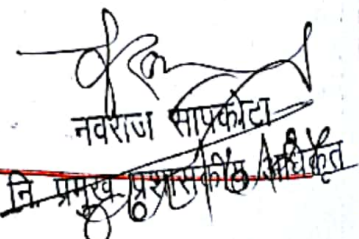 नवराज सापकोटा
नि. प्रमुख प्रशासकीय अधिकृत